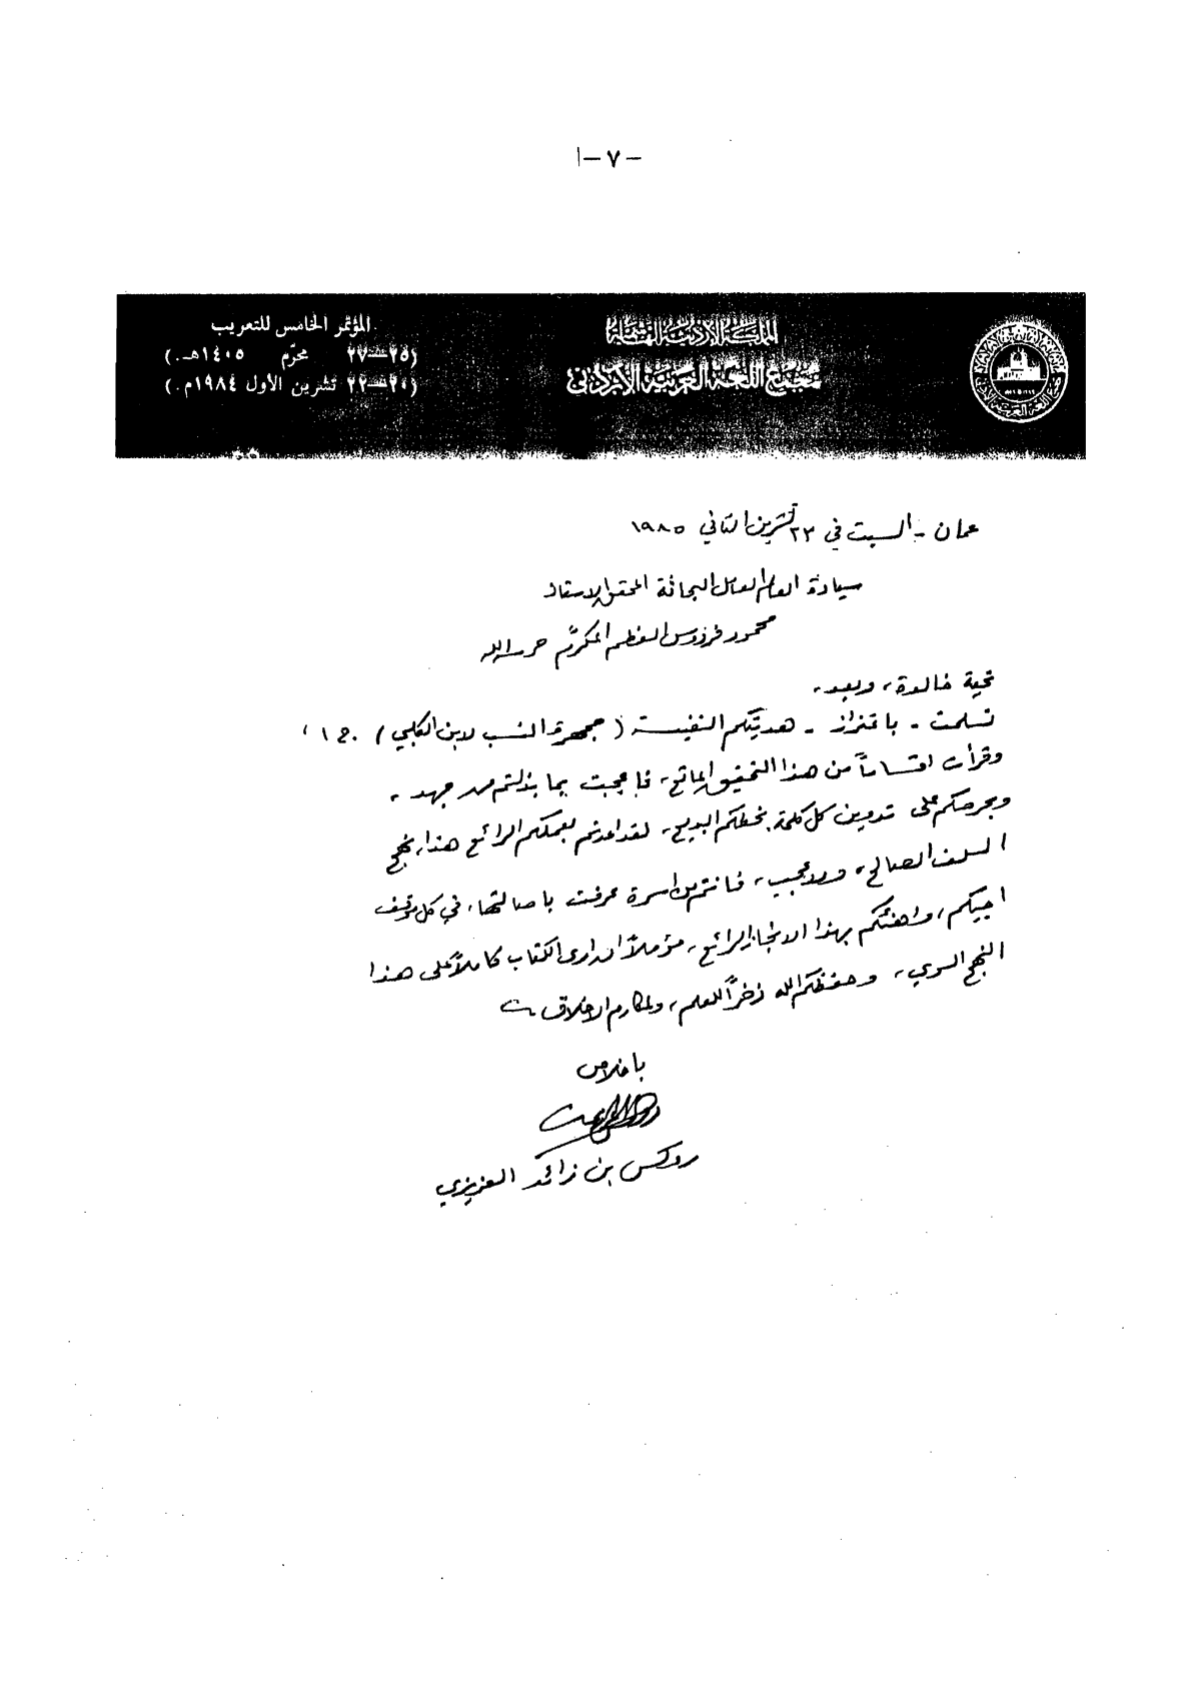 - ٧ - ا
المملكة الأردنية الهاشمية
مجمع اللغة العربية الأردني
المؤتمر الخامس للتعريب
(٢٥-٢٧ محرّم ١٤٠٥هـ.)
(٢٠-٢٢ تشرين الأول ١٩٨٤م.)
عمان - السبت في ٢٣ تشرين الثاني ١٩٨٥
سيادة العالم العامل البحاثة المحقق الاستاذ
محمود فردوس العظم المكرّم حرسه الله
تحية خالدة، وبعد،
تسلمت - باعتزاز - هديتكم النفيسة (جمهرة النسب لابن الكلبي) ج ١،
وقرأت اقساماً من هذا التحقيق الماتع، فاعجبت بما بذلتم من جهد،
وبحرصكم على تدوين كل كلمة بخطكم البديع، لقد اعدتم بعملكم الرائع هذا، نهج
السلف الصالح، ولا عجب، فانتم من اسرة عرفت باصالتها، في كل موقف
احييكم، واهنئكم بهذا الانجاز الرائع، مؤملاً ان ارى الكتاب كاملاً على هذا
النهج السوي، وحفظكم الله ذخراً للعلم، ولمكارم الاخلاق
باخلاص
روكس بن زائد العزيزي